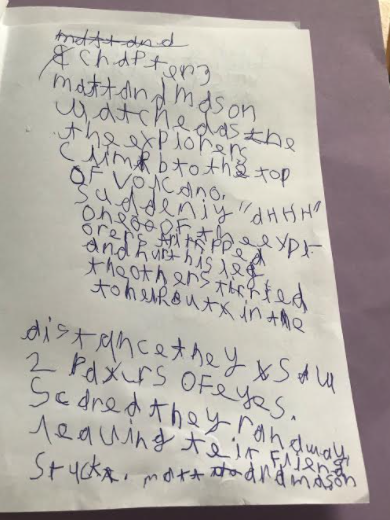 mattand
& chapter 3
mattand mason
watched as the
the explorers
climb to the top
of volcano.
Suddenly "aHHH"
one oof the expl
orers tripped
and hurt his leg
the others started
to help but x in the
distance they x saw
2 paxurs of eyes.
Scared they ran away
leaving teir friend
stuck. matt and mason